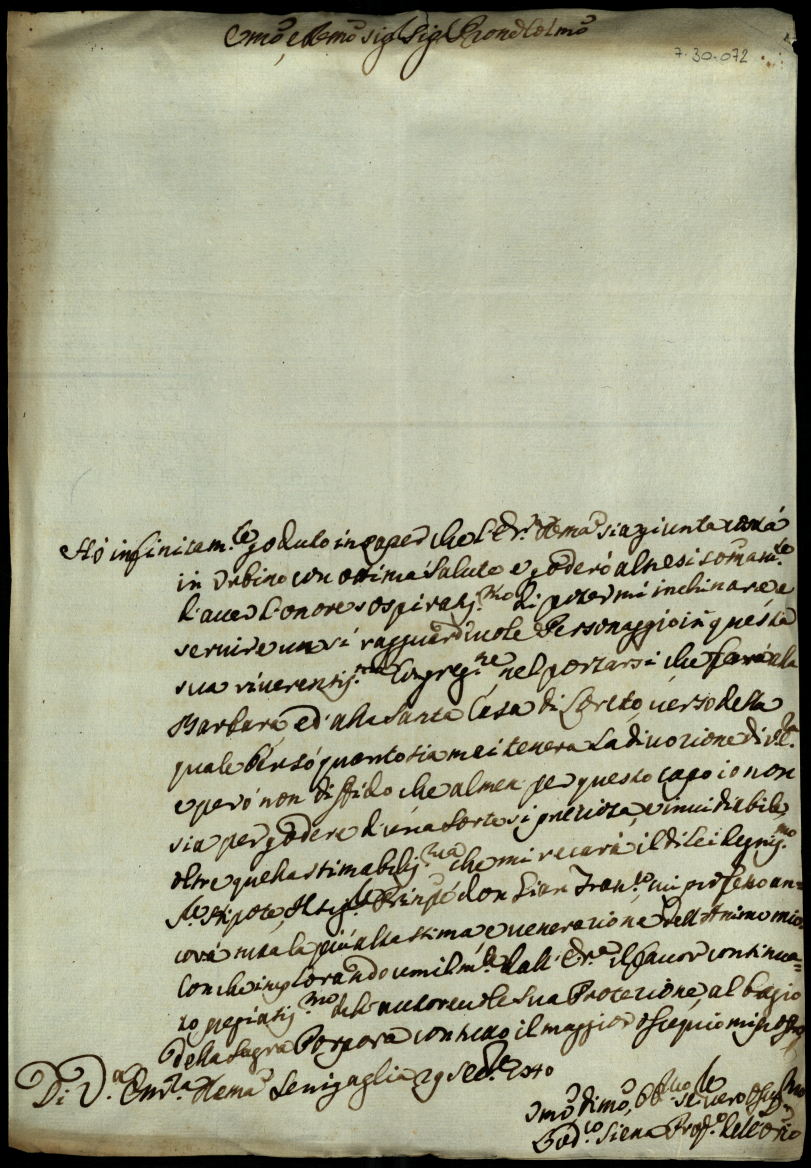 Emo, e Rmo Sig. Sig. Pron Colmo
7-30-072
Hó infinitam.te goduto in saper che l'E.V. Rma sia giunta costá
in Urbino con ottima salute e goderó altresi somam.te
l'aver l'onore sospiratis.mo di poter mi inchinare, e
servire un sí ragguardevole Personaggio in questa
sua riverentis.ma Congreg.ne, nel portarsi che fará alla
Barbara, ed alla Santa Casa di Loreto verso della
quale ben só quanto sia mai tenera la divozione di
e peró non diffido che almen per questo capo io non
sia per godere d'una sorte si preziosa, e invidiabile,
oltre quella stimabilis.ma che mi recará il di lei degnis.mo
Sig.r Nipote, il Sig.r Prinpe don Gian Fran.co cui professo an=
cora tutta la piú alta stima, e venerazione dell'Animo mio
Con che implorando umilm.te dall'E.V. il favor continua=
to pregiatis.mo dell'autorevole sua Protezione, al bagio
della Sagra Porpora con tutto il maggior ossequio mi
Di V.a Em.za Rema Senigaglia 29 1740
Umo Dimo, Obb.mo Se.re vero
Siena Prep.o dell'Orio